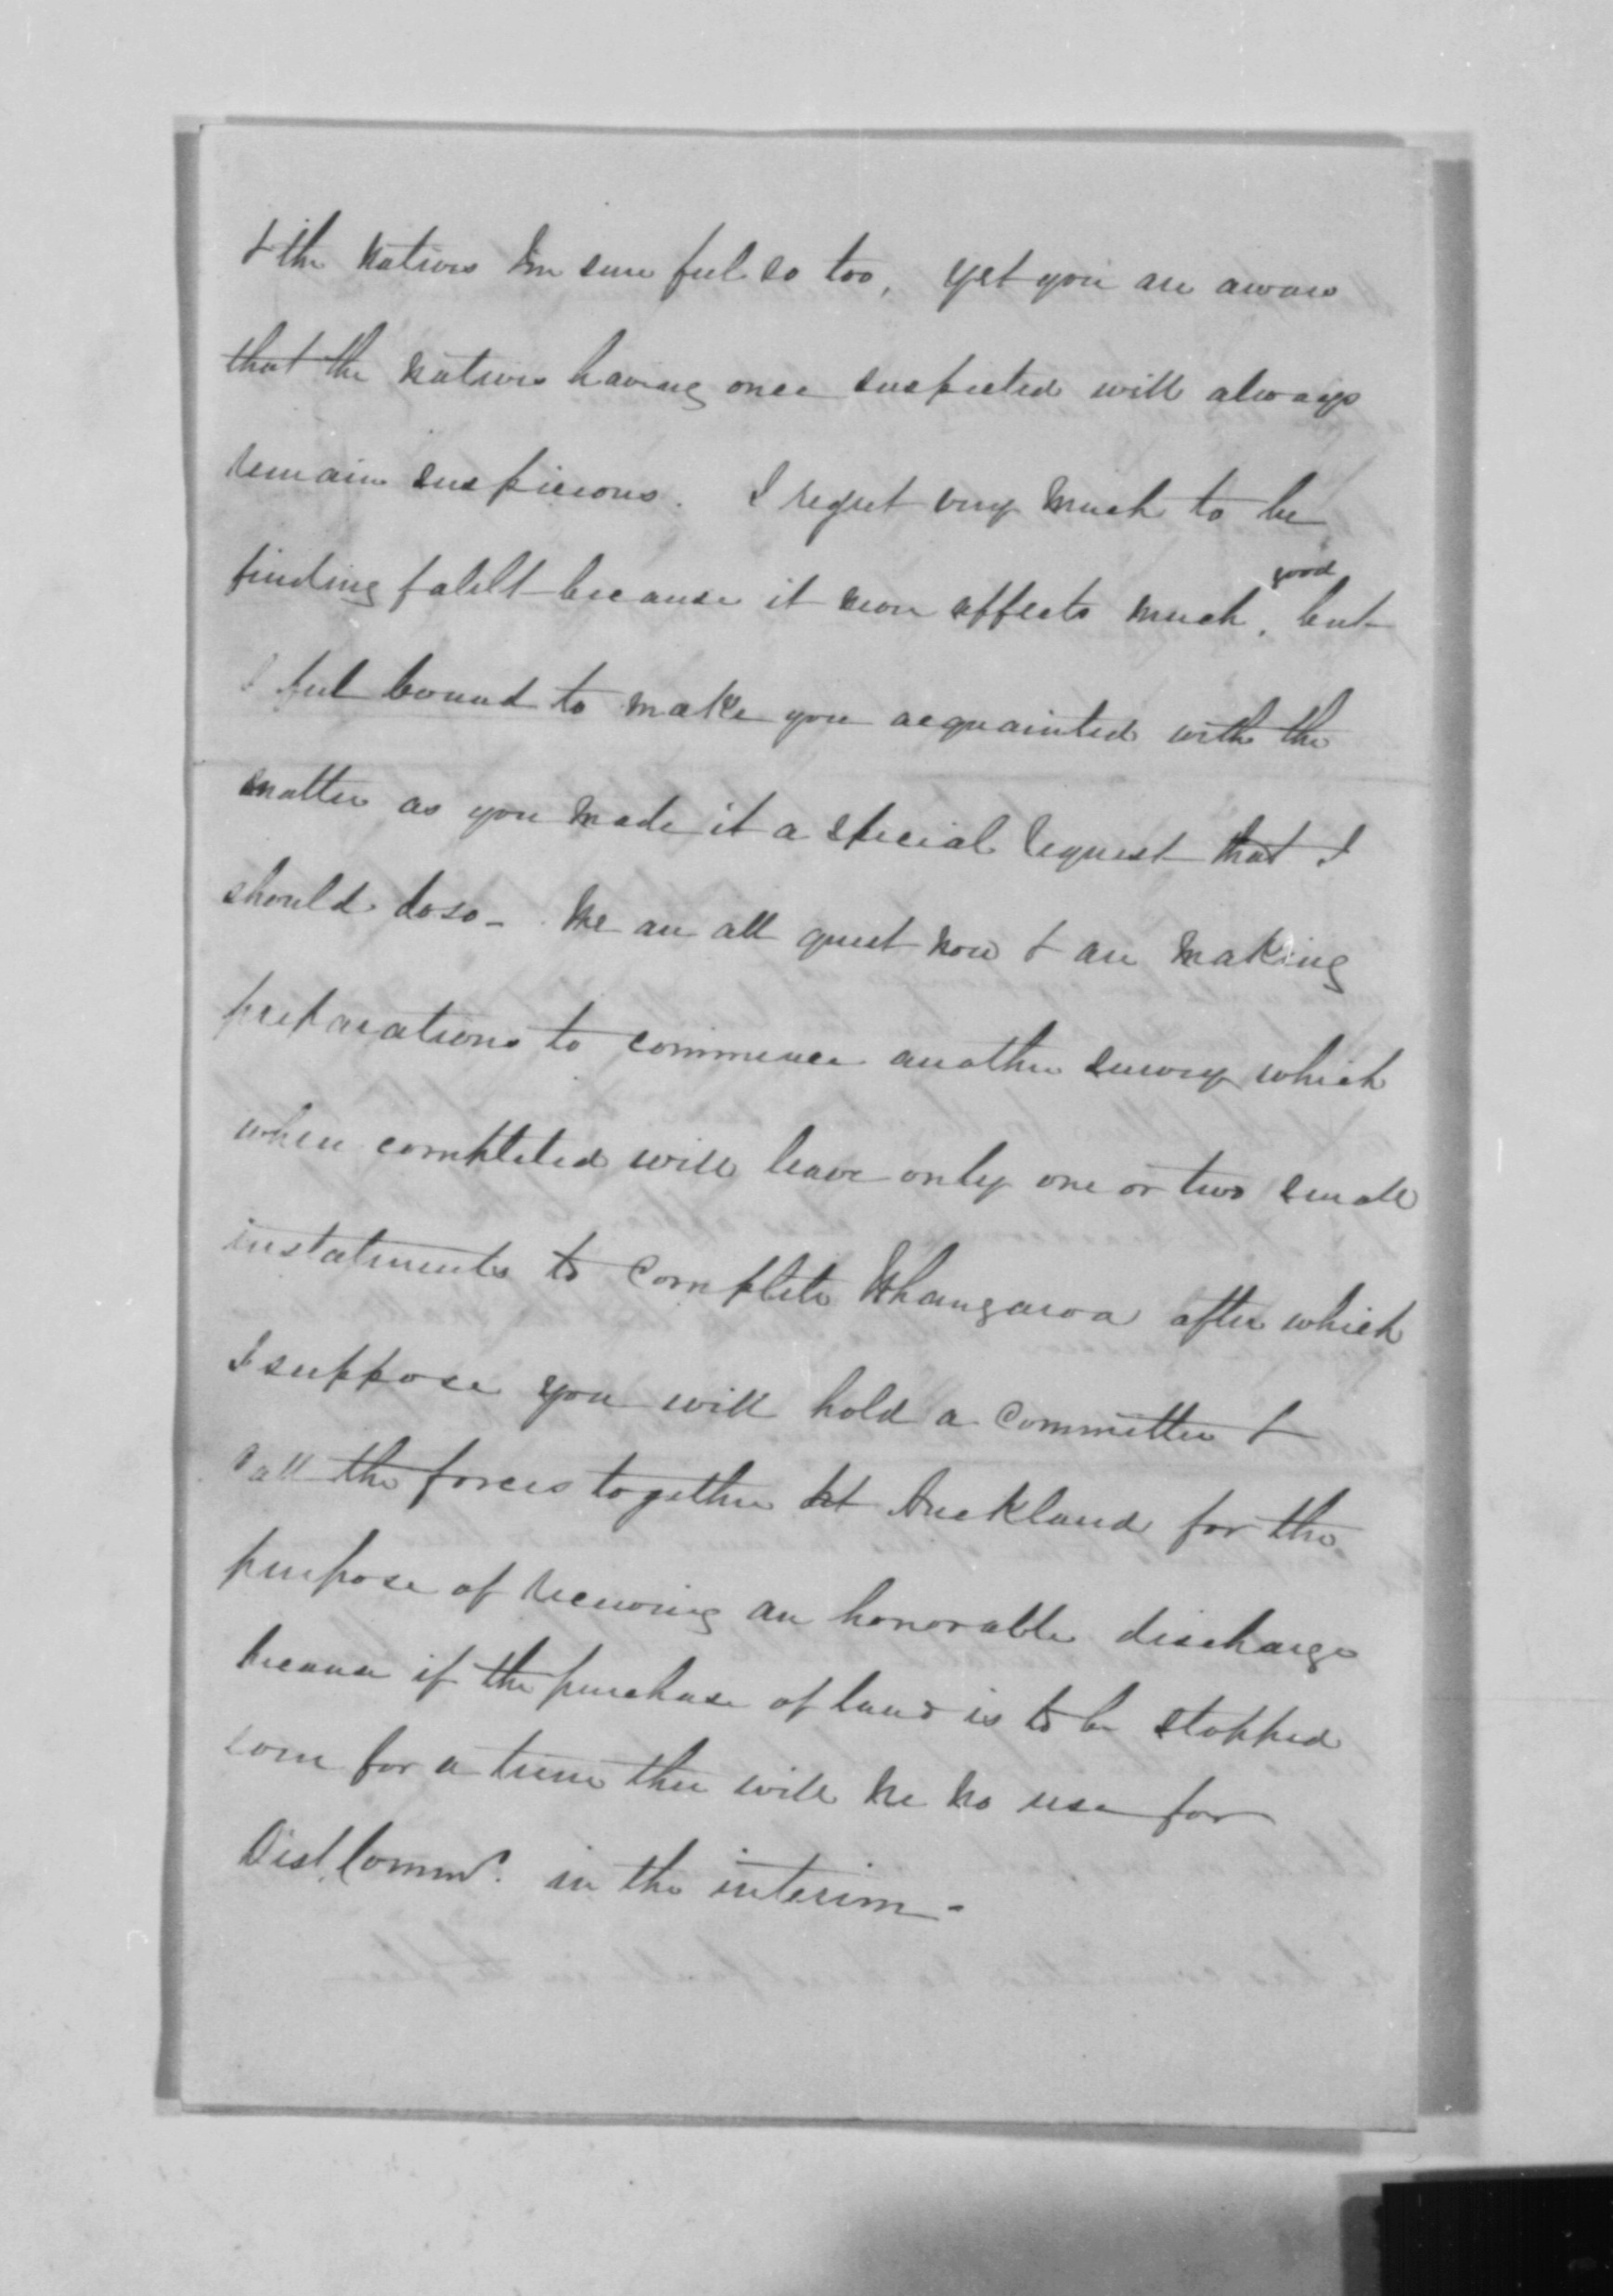 & the Natives I'm sure feel so too, yet you are aware
that the Natives having once suspected will always
remain suspicious. I regret very much to be
finding falilt because it now affects much good, but
I feel bound to make you acquainted with the
matter as you made it a special request that I
should do so - We are all quiet now & are making
preparations to commence another survey which
when completed will leave only one or two small
instalments to complete Whangaroa after which
I suppose you will hold a Committee &
call the forces together at Auckland for the
purpose of receiving an honorable discharge
because if the purchase of land is to be stopped
even for a time there will be no use for
Dist. Commr. in the interim -